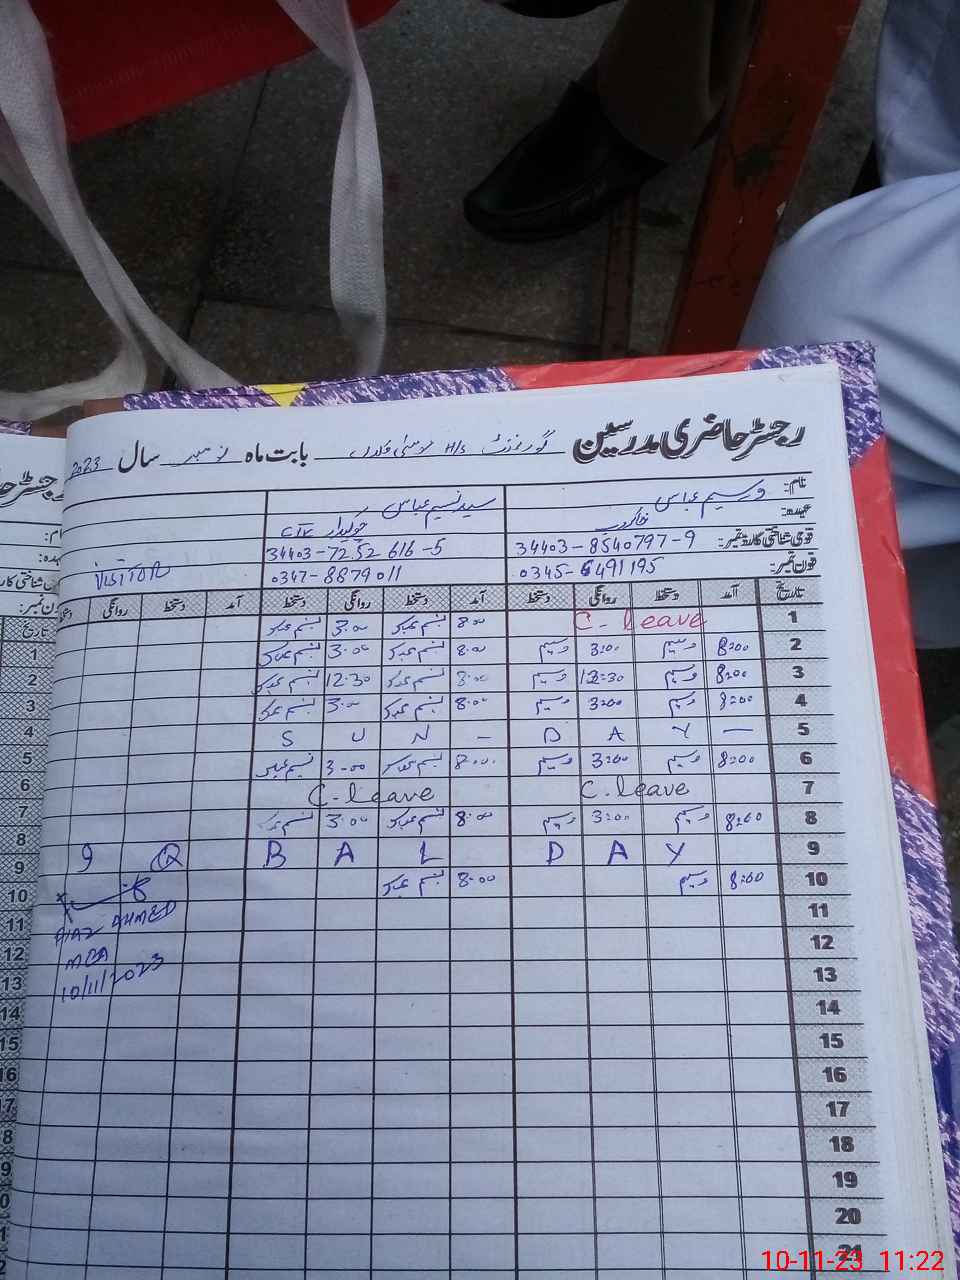 رجسٹر حاضری مدرسین گورنمنٹ H/S بابت ماہ نومبر سال 2023
نام: وسیم عباس سید نسیم عباس
عہدہ: خاکروب چوکیدار CIV
قومی شناختی کارڈ نمبر: 34403-8540797-9 34403-7252616-5
فون نمبر: 0345-6491195 0347-8879011 VISITOR
تاریخ آمد دستخط روانگی دستخط آمد دستخط روانگی دستخط آمد دستخط روانگی دستخط
1 C. leave 8:00 نسیم عباس 3:00 نسیم عباس
2 8:00 وسیم 3:00 وسیم 8:00 نسیم عباس 3:00 نسیم عباس
3 8:00 وسیم 12:30 وسیم 8:00 نسیم عباس 12:30 نسیم عباس
4 8:00 وسیم 3:00 وسیم 8:00 نسیم عباس 3:00 نسیم عباس
5 S U N - D A Y -
6 8:00 وسیم 3:00 وسیم 8:00 نسیم عباس 3-00 نسیم عباس
7 C. leave C. leave
8 8:00 وسیم 3:00 وسیم 8:00 نسیم عباس 3:00 نسیم عباس
9 9 Q B A L D A Y
10 8:00 وسیم 8:00 نسیم عباس
11 AHMED
12 MEA
13 10/11/2023
14
15
16
17
18
19
20
21
10-11-23 11:22